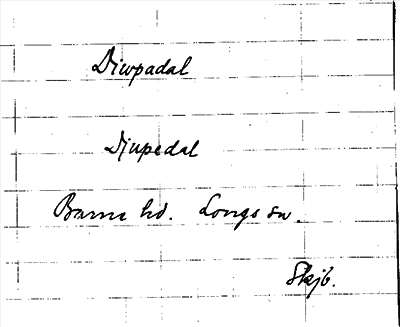 Diwpadal
Djupedal
Bamne hd. Longs sn.
Skjb.